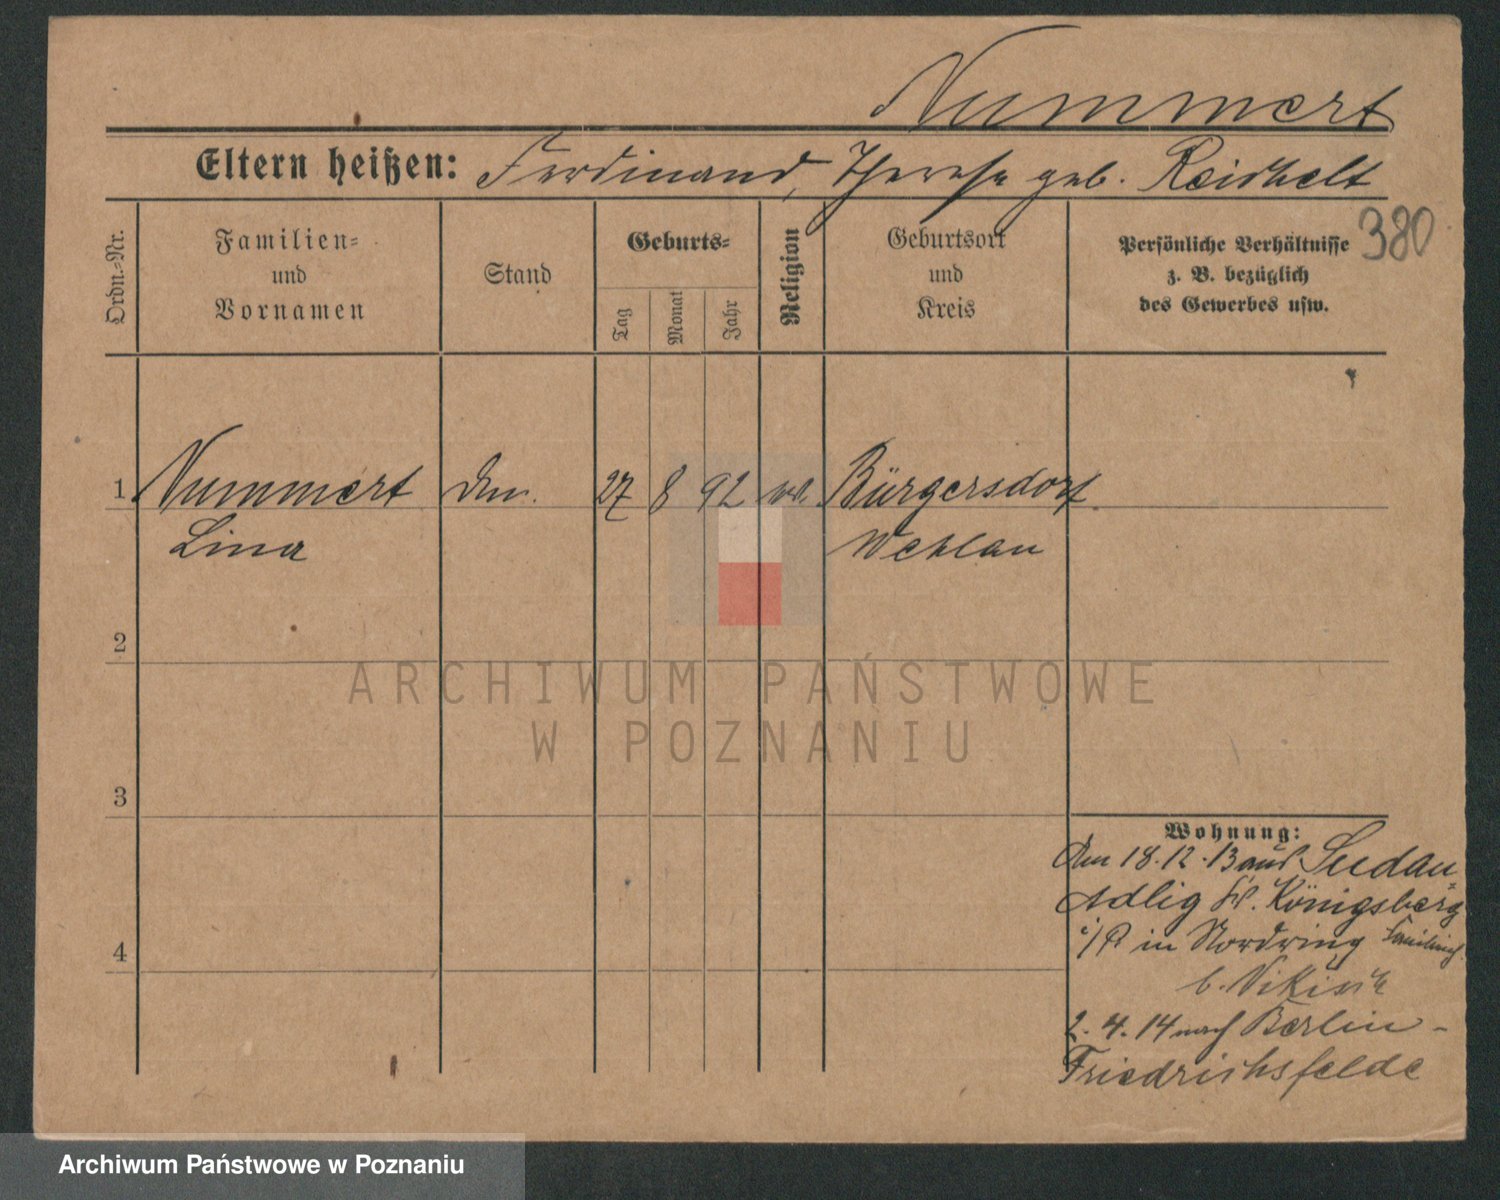 Nummert
Eltern heißen: Ferdinand, Therese geb. Reichelt
380
Ordn.=Nr.
Familien=
und
Vornamen
Stand
Geburts=
Tag
Monat
Jahr
Religion
Geburtsort
und
Kreis
Persönliche Verhältnisse
z. B. bezüglich
des Gewerbes usw.
1 Nummert 27 8 92 Bürgersdorf
Lina Wehlau
2
3
4
Wohnung:
Am 18.12.13 aus Seedau
Adlig Kr. Königsberg
i/P in Nordring
b.
2.4.14 nach Berlin-
Friedrichsfelde
ARCHIWUM PAŃSTWOWE
W POZNANIU
Archiwum Państwowe w Poznaniu